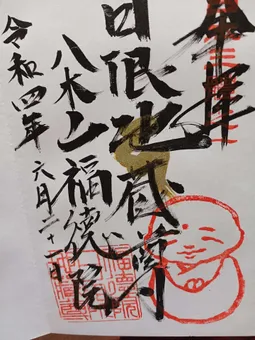 奉拝
日限地蔵尊
八木山福徳院
令和四年六月二十一日